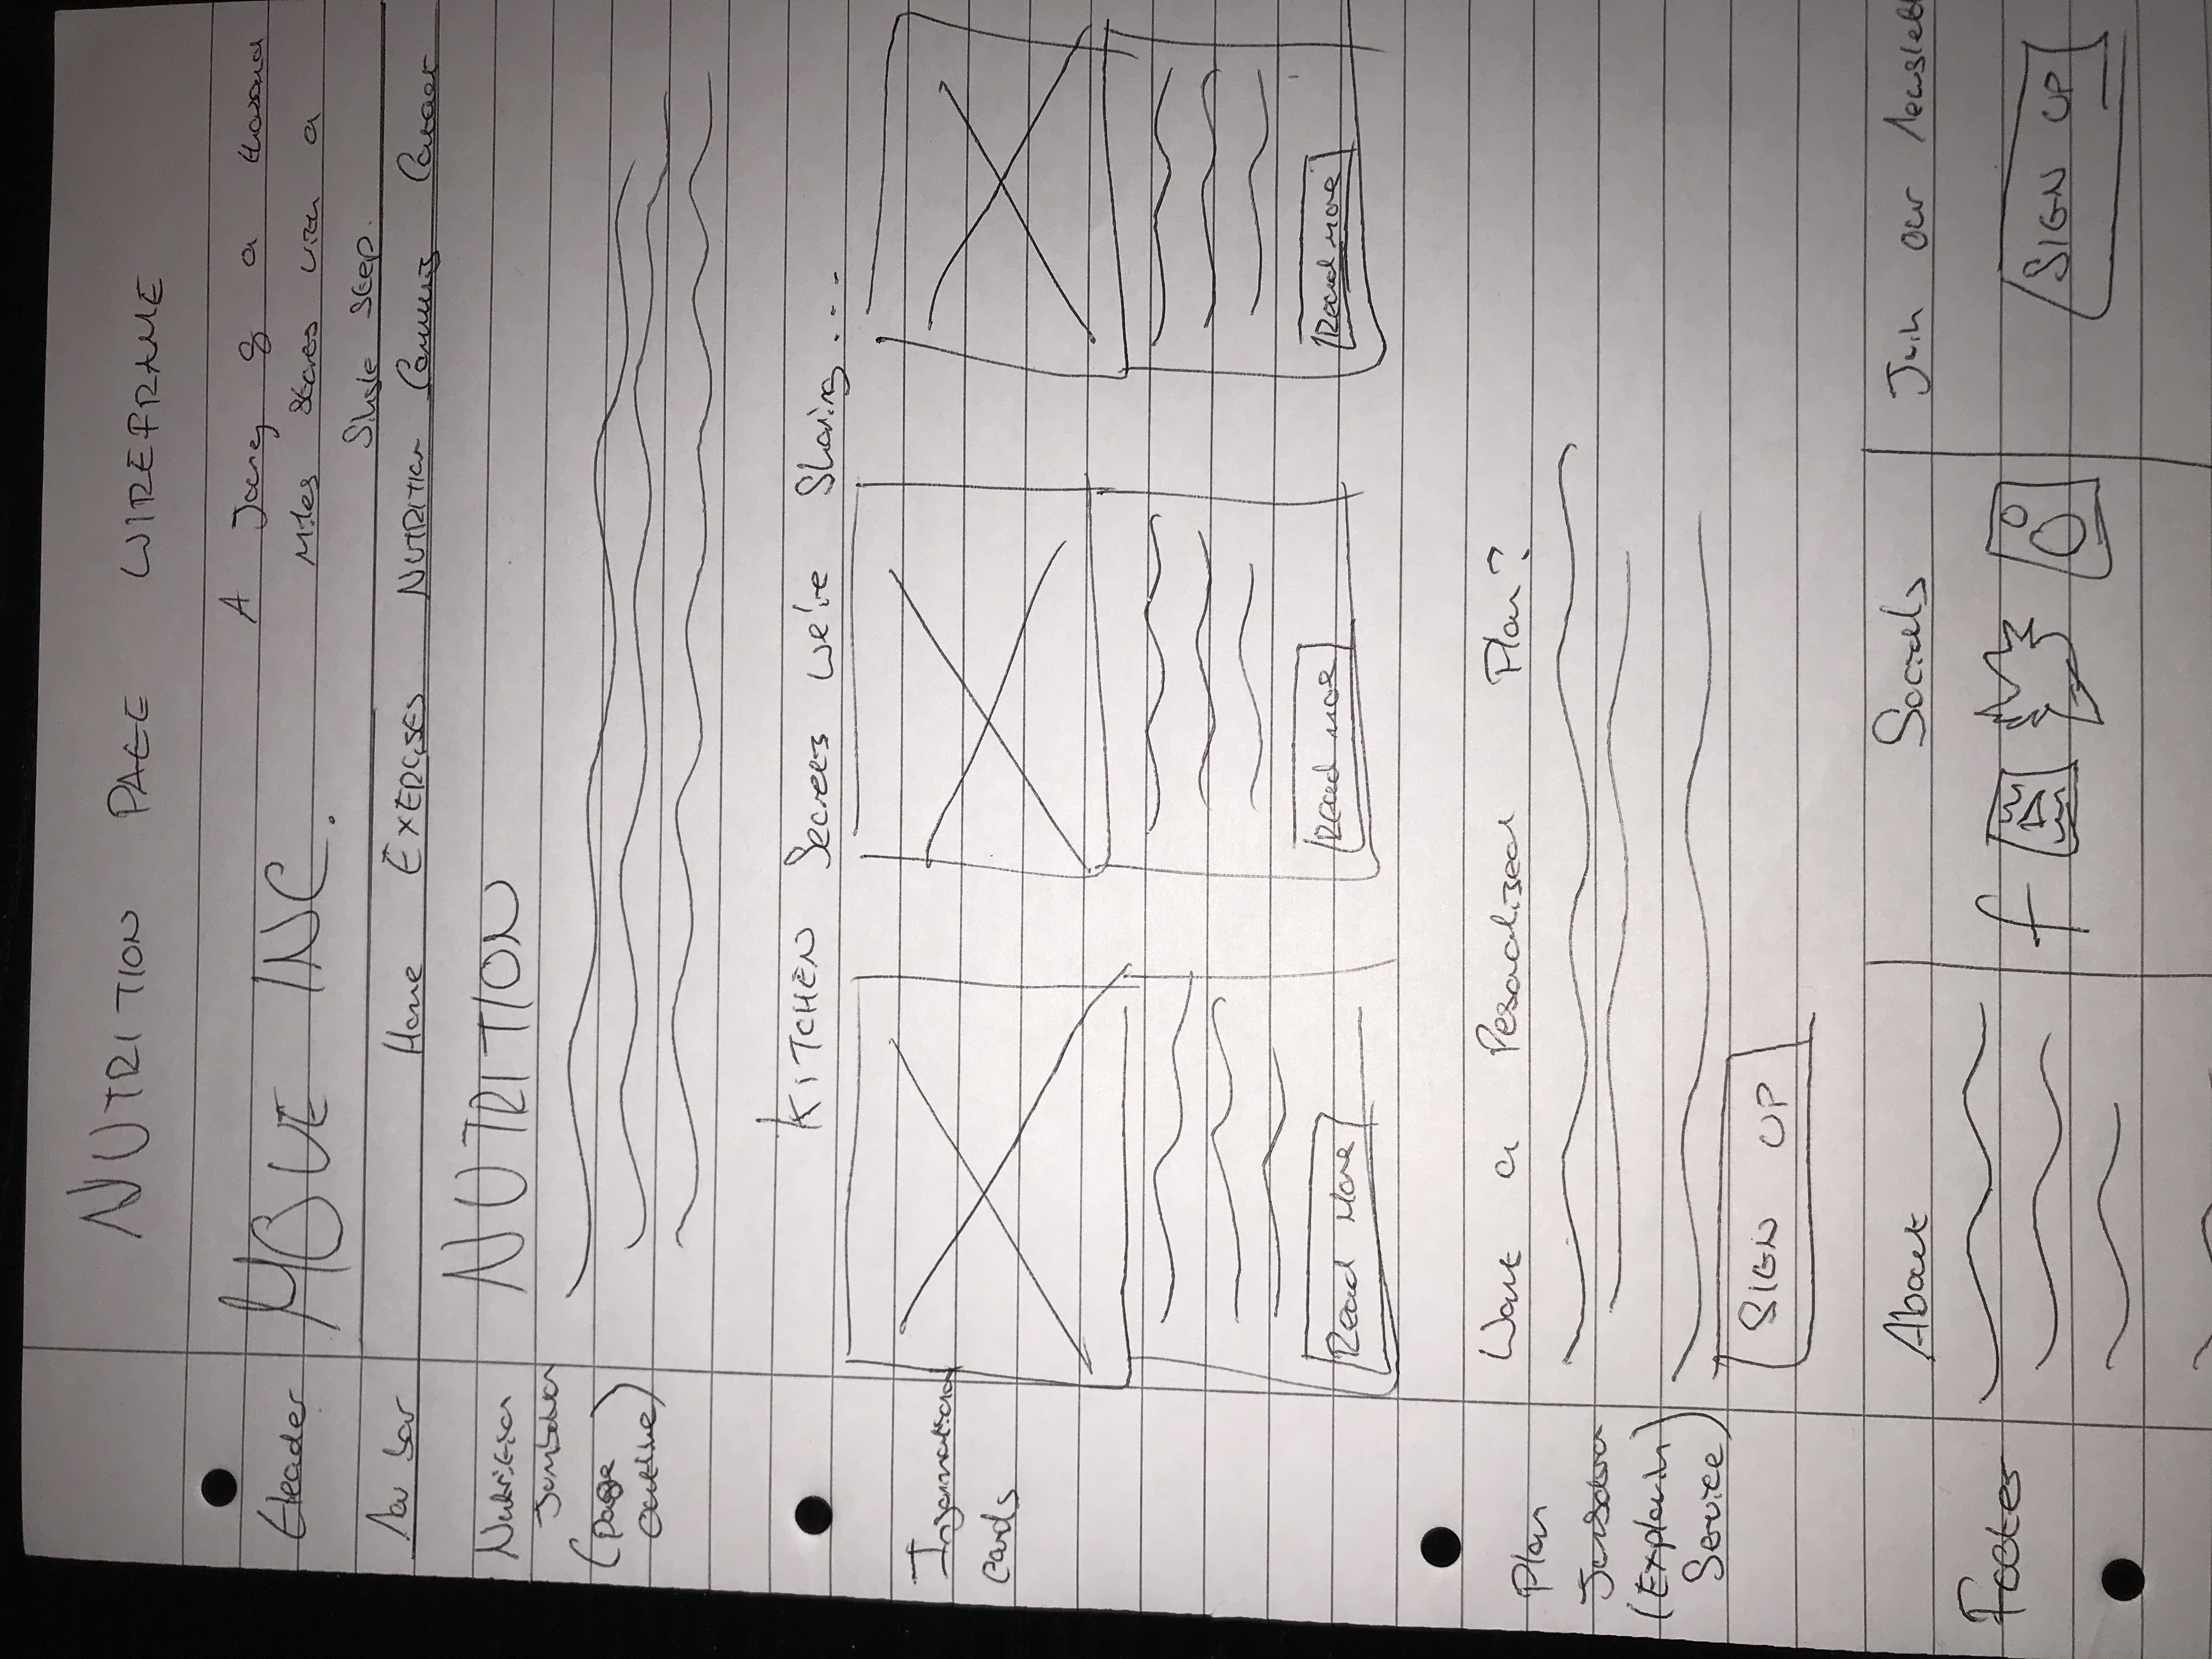 NUTRITION PAGE WIREFRAME
Header
MOVE INC.
A Journey of a thousand
Miles Starts with a
Single Step.
Nav bar
Home EXERCISES NUTRITION Community Contact
Nutrition
Jumbotron
(page
outline)
NUTRITION
KITCHEN Secrets we're Sharing...
Informational
Cards
Read More
Read more
Read more
Plan
Jumbotron
(Explaining
Service)
Want a Pesonalized Plan?
SIGN UP
Footer
About
Socials
Join our Newslett
f
SIGN UP